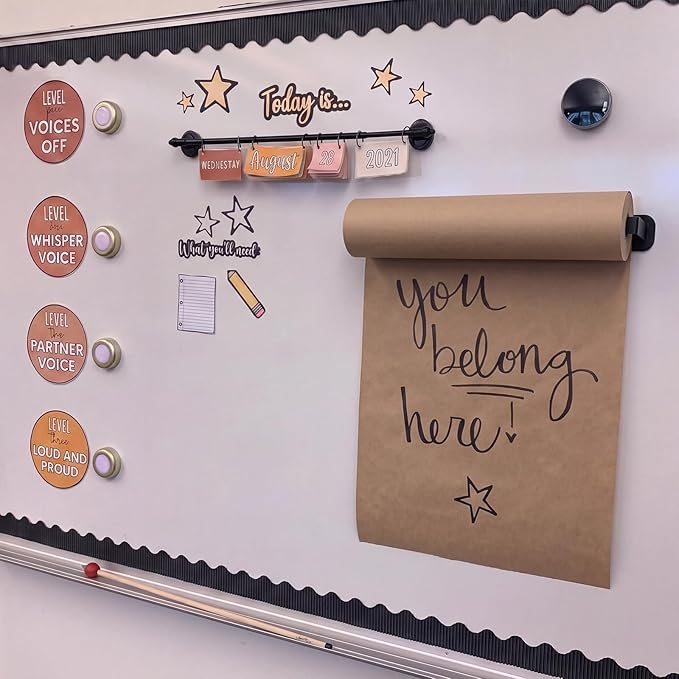 Today is...
WEDNESTAY
August
28
2021
LEVEL
VOICES
OFF
LEVEL
WHISPER
VOICE
LEVEL
PARTNER
VOICE
LEVEL
three
LOUD AND
PROUD
What you'll need
you
belong
here!